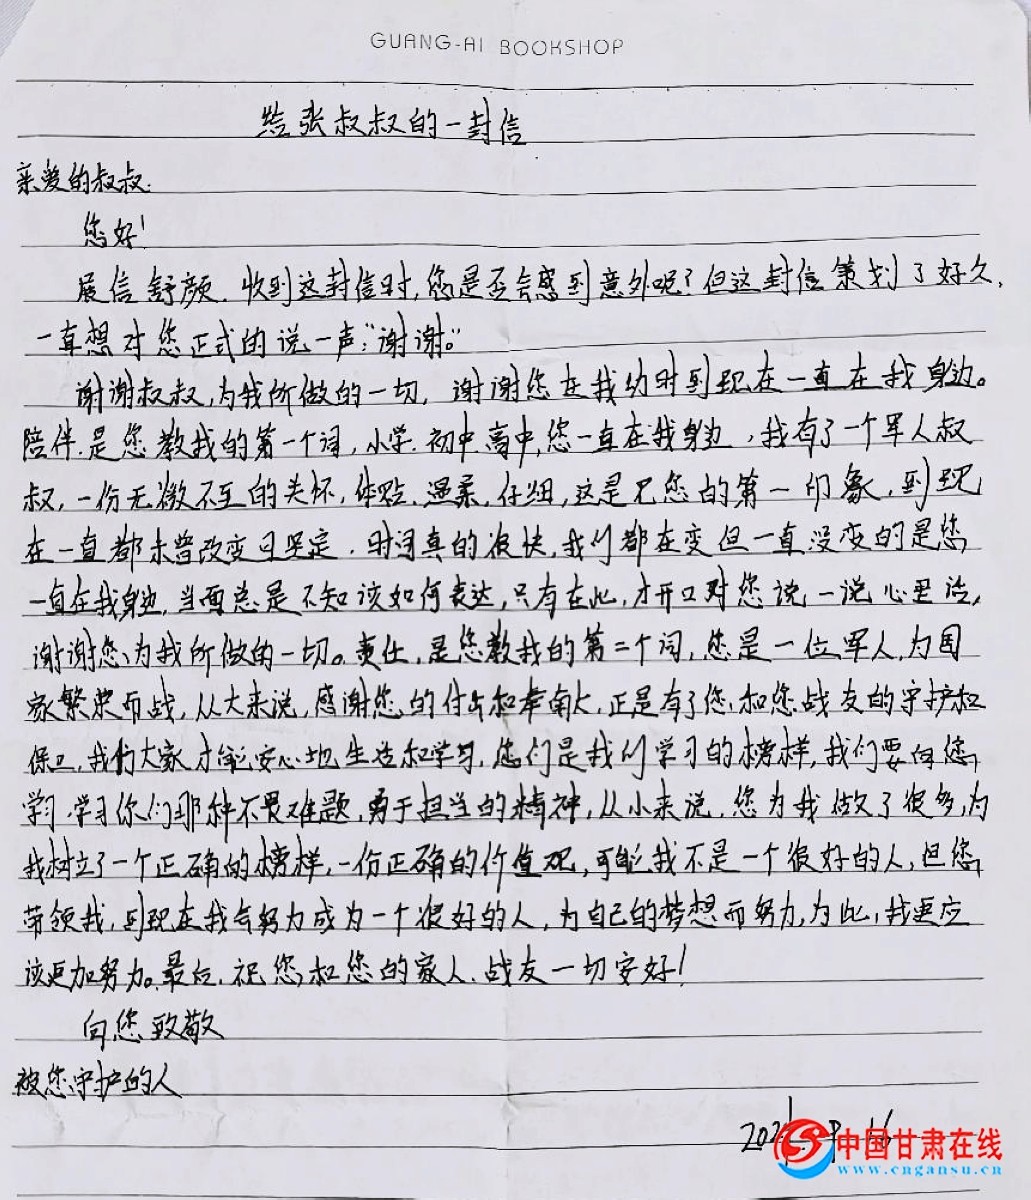 GUANG-AI BOOKSHOP
给张叔叔的一封信
亲爱的叔叔:
您好!
展信舒颜.收到这封信时,您是否会感到意外呢?但这封信策划了好久,
一直想对您正式的说一声:“谢谢。”
谢谢叔叔,为我所做的一切,谢谢您在我幼时到现在一直在我身边。
陪伴.是您教我的第一个词,小学.初中.高中,您一直在我身边,我有了一个军人叔
叔,一份无微不至的关怀,体贴.温柔.仔细,这是见您的第一印象,到现
在一直都未曾改变日坚定.时间真的很快,我们都在变但一直没变的是您
一直在我身边,当面总是不知该如何表达,只有在此,才开口对您说一说心里话,
谢谢您,为我所做的一切。责任,是您教我的第二个词,您是一位军人,为国
家繁荣而战,从大来说,感谢您的付出和奉献,正是有了您,和您战友的守护和
保卫,我们大家才能安心地生活和学习,您们是我们学习的榜样,我们要向您
学习.学习你们那种不畏难题,勇于担当的精神,从小来说,您为我做了很多,为
我树立了一个正确的榜样,一份正确的价值观,可能我不是一个很好的人,但您
带领我,到现在我会努力成为一个很好的人,为自己的梦想而努力,为此,我更应
该更加努力。最后,祝您,和您的家人.战友一切安好!
向您致敬
被您守护的人
202 .16
中国甘肃在线
www.cngansu.cn